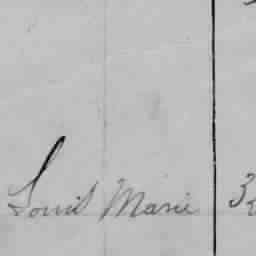 Louis Marie 3